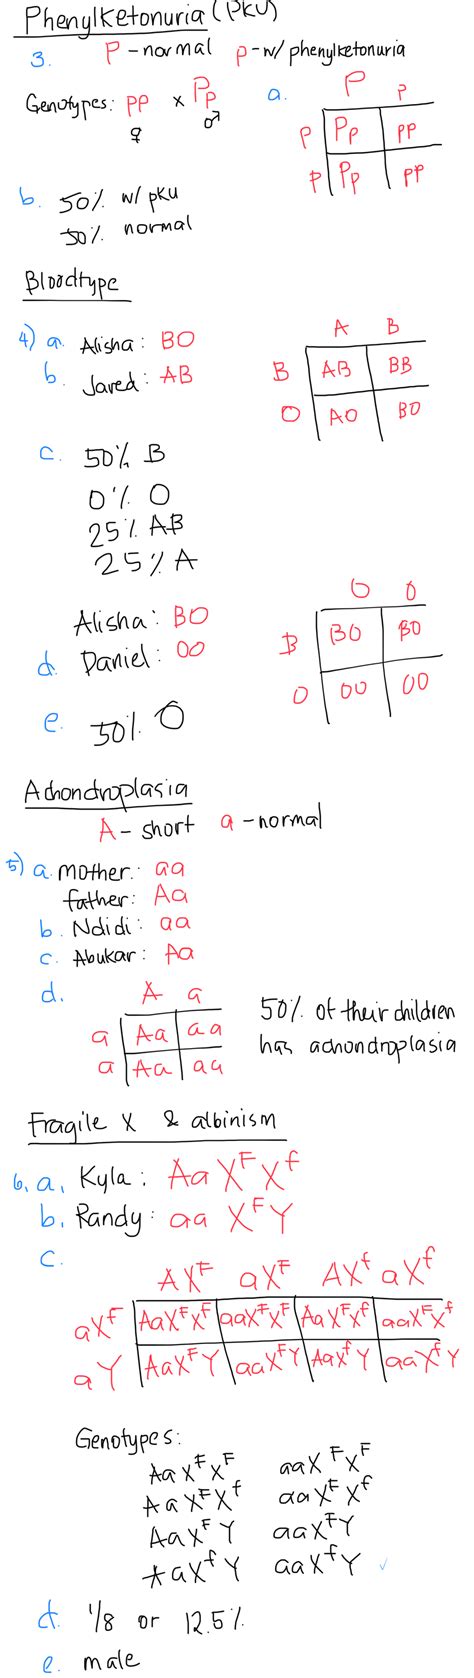 Phenylketonuria (PKU)
3. P - normal p - w/ phenylketonuria
Genotypes: pp x Pp
♀ ♂
a.
P p
p Pp pp
p Pp pp
b. 50% w/ pku
50% normal
Bloodtype
4) a. Alisha: BO
b. Jared: AB
A B
B AB BB
O AO BO
c. 50% B
0% O
25% AB
25% A
Alisha: BO
d. Daniel: OO
O O
B BO BO
O OO OO
e. 50% O
Achondroplasia
A - short a - normal
5) a. mother: aa
father: Aa
b. Ndidi: aa
c. Abukar: Aa
d.
A a
a Aa aa
a Aa aa
50% of their children
has achondroplasia
Fragile X & albinism
6. a. Kyla: Aa X^F X^f
b. Randy: aa X^F Y
c.
AX^F aX^F AX^f aX^f
aX^F AaX^FX^F aaX^FX^F AaX^FX^f aaX^FX^f
aY AaX^FY aaX^FY AaX^fY aaX^fY
Genotypes:
AaX^FX^F aaX^FX^F
AaX^FX^f aaX^FX^f
AaX^FY aaX^FY
AaX^fY aaX^fY
d. 1/8 or 12.5%
e. male